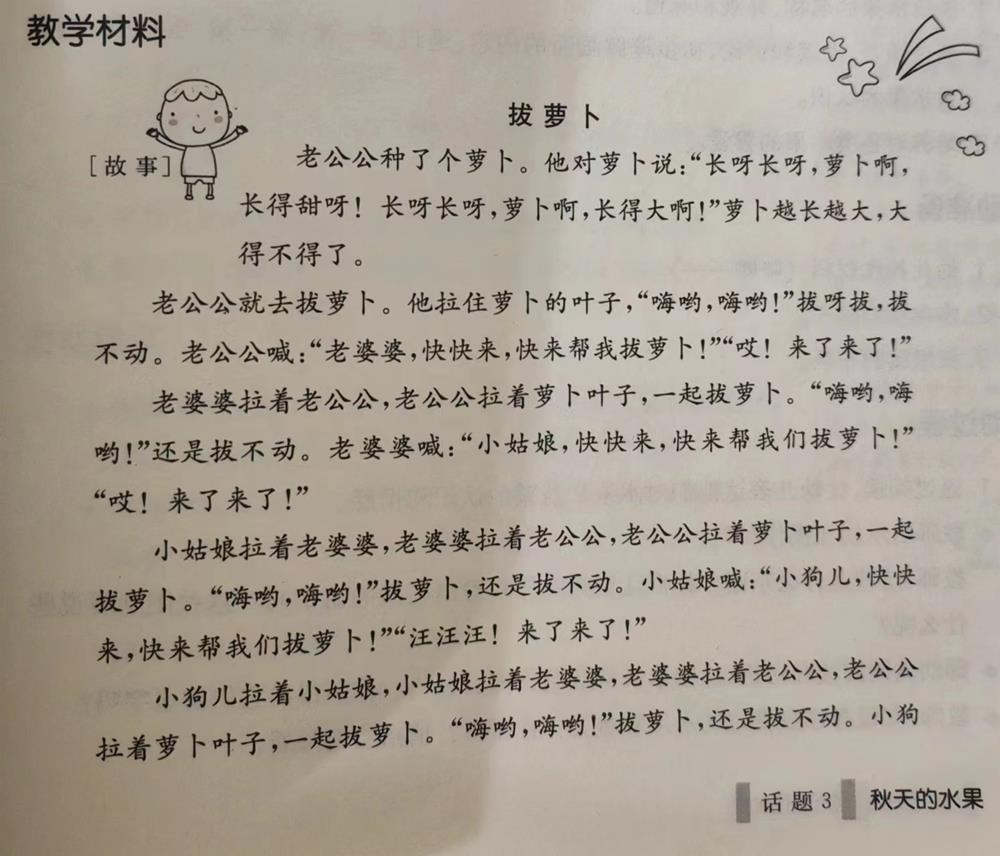 教学材料
拔萝卜
[故事]
老公公种了个萝卜。他对萝卜说：“长呀长呀，萝卜啊，
长得甜呀！长呀长呀，萝卜啊，长得大啊！”萝卜越长越大，大
得不得了。
老公公就去拔萝卜。他拉住萝卜的叶子，“嗨哟，嗨哟！”拔呀拔，拔
不动。老公公喊：“老婆婆，快快来，快来帮我拔萝卜！”“哎！来了来了！”
老婆婆拉着老公公，老公公拉着萝卜叶子，一起拔萝卜。“嗨哟，嗨
哟！”还是拔不动。老婆婆喊：“小姑娘，快快来，快来帮我们拔萝卜！”
“哎！来了来了！”
小姑娘拉着老婆婆，老婆婆拉着老公公，老公公拉着萝卜叶子，一起
拔萝卜。“嗨哟，嗨哟！”拔萝卜，还是拔不动。小姑娘喊：“小狗儿，快快
来，快来帮我们拔萝卜！”“汪汪汪！来了来了！”
小狗儿拉着小姑娘，小姑娘拉着老婆婆，老婆婆拉着老公公，老公公
拉着萝卜叶子，一起拔萝卜。“嗨哟，嗨哟！”拔萝卜，还是拔不动。小狗
话题3 秋天的水果